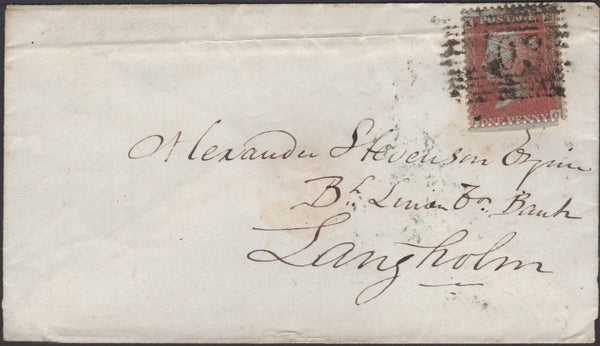 POSTAGE
ONE PENNY
Alexander Stevenson Esquire
Bh Linen Co Bank
Langholm